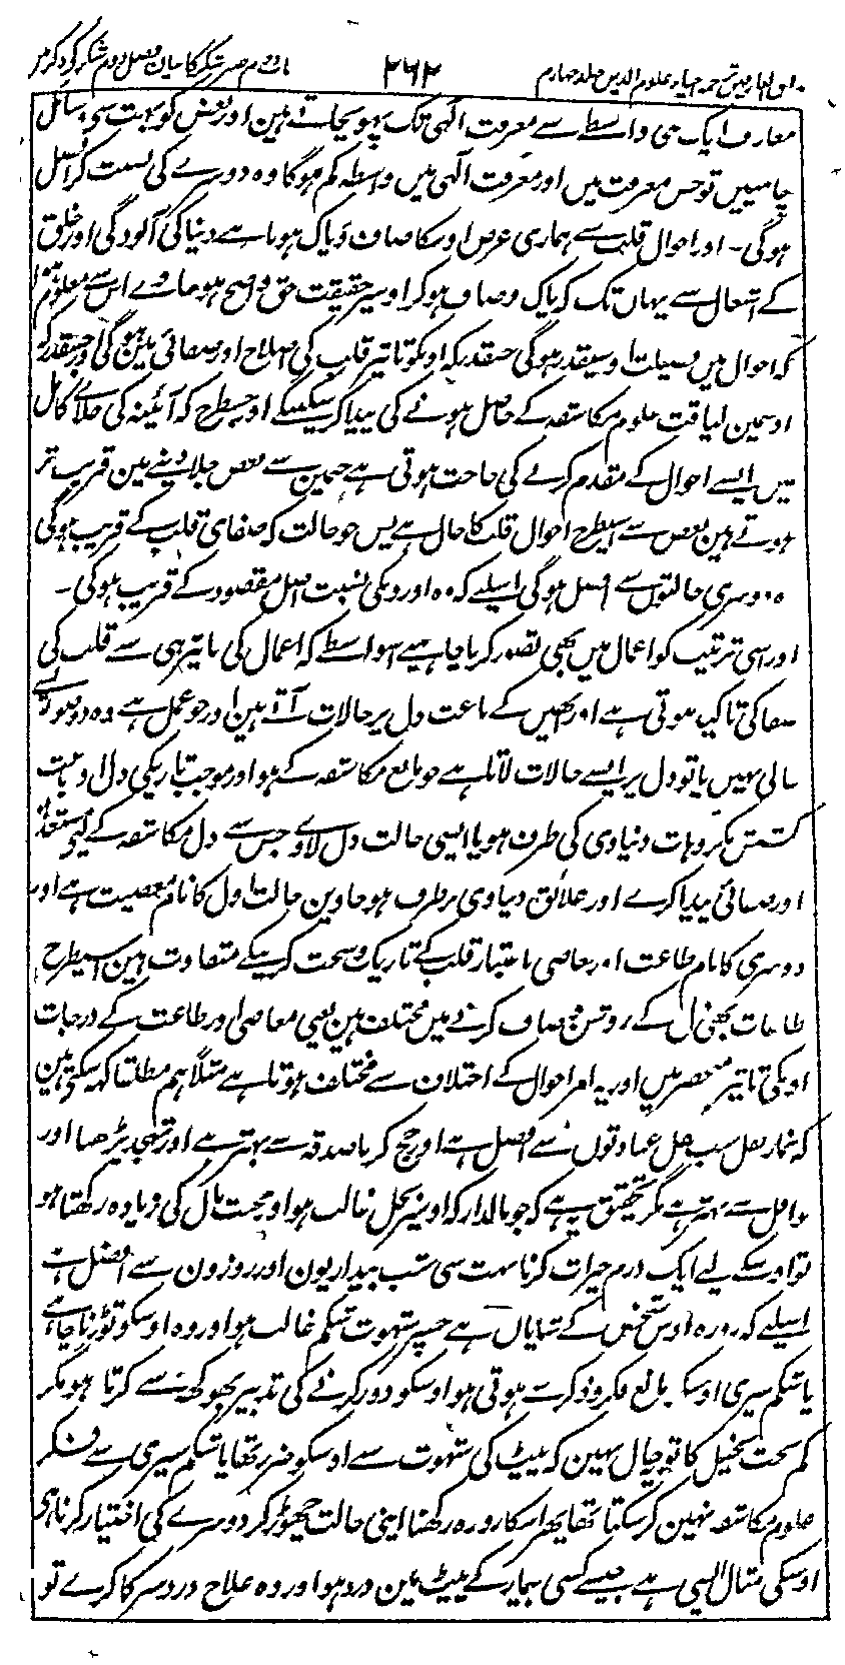 مذاق العارفین ترجمہ احیاء علوم الدین جلد چہارم ۲۶۲ باب دوم صبر شکر کا بیان فصل دوم شکر کے ذکر میں
معارف ایک ہی واسطے سے معرفت الٰہی تک پہونچاتے ہین اور بعض کو بہت سے وسائل
چاہییں تو جس معرفت میں اور معرفت الٰہی میں واسطہ کم ہوگا وہ دوسرے کی نسبت کر افضل
ہوگی۔ اور احوال قلب سے ہماری غرض اوسکا صاف و پاک ہونا ہے دنیا کی آلودگی اور خلق
کے اشتغال سے یہاں تک کہ پاک و صاف ہوکر اوسپر حقیقت حق واضح ہوجاوے اس سے معلوم ہوا
کہ احوال میں فضیلت اوسیقدر ہوگی جسقدر کہ اونکو تاثیر قلب کی اصلاح اور صفائی مین ہوگی اور جسقدر کہ
اوسمین لیاقت علوم مکاشفہ کے حاصل ہونے کی پیدا کرسکینگے اور جسطرح کہ آئینہ کی جلاے کامل
میں ایسے احوال کے مقدم کرنے کی حاجت ہوتی ہے جنمین سے بعض جلا دینے مین قریب تر
ہوتے ہین بعض سے اسیطرح احوال قلب کا حال ہے پس جو حالت کہ صفای قلب کے قریب ہوگی
وہ دوسری حالتوں سے افضل ہوگی اسلیے کہ وہ اورونکی نسبت اصل مقصود کے قریب ہوگی۔
اور اسی ترتیب کو اعمال میں بھی تصور کرنا چاہیے اسواسطے کہ اعمال کی تاثیر ہی سے قلب کی
صفا کی تاکید ہوتی ہے اور انھیں کے باعث دل پر حالات آتے ہین اور جو عمل ہے وہ دو امر سے
خالی نہیں یا تو دل پر ایسے حالات لاتا ہے جو مانع مکاشفہ کے ہو اور موجب تاریکی دل اور باعث
کشش مکروہات دنیاوی کی طرف ہو یا ایسی حالت دل لاوے جس سے دل مکاشفہ کے لیے مستعد ہو
اور صفائی پیدا کرے اور علائق دنیاوی برطرف ہوجاوین حالت اول کا نام معصیت ہے اور
دوسری کا نام طاعت اور معاصی باعتبار قلب کے تاریک و سخت کرنیکے متفاوت ہین اسیطرح
طاعات بھی دل کے روشن و صاف کرنے میں مختلف ہین یعنی معاصی اور طاعت کے درجات
اونکی تاثیر پر منحصر ہیں اور یہ امر احوال کے اختلاف سے مختلف ہوتا ہے مثلاً ہم مطلقاً کہہ سکتے ہین
کہ نماز نفل سب نفل عبادتوں سے افضل ہے اور حج کرنا صدقہ سے بہتر ہے اور تہجد پڑھنا اور
نوافل سے بہتر ہے مگر تحقیق یہ ہے کہ جو مالدار کہ اوسپر بخل غالب ہو اور محبت مال کی زیادہ رکھتا ہو
تو اوسکے لیے ایک درم خیرات کرنا بہت سی شب بیداریون اور روزون سے افضل ہے
اسلیے کہ روزہ اوس شخص کے شایاں ہے جسپر شہوت شکم غالب ہو اور وہ اوسکو توڑنا چاہے
یا شکم سیری اوسکو مانع فکر و ذکر سے ہوتی ہو اوسکو دور کرنے کی تدبیر بھوکھ سے کرتا ہو مگر
کم بخت بخیل کا تو یہ حال نہین کہ پیٹ کی شہوت سے اوسکو ضرر تھا یا شکم سیری سے فکر
علوم مکاشفہ نہین کرسکتا تھا پھر اسکا روزہ رکھنا اپنی حالت چھوڑ کر دوسرے کی اختیار کرنا ہی
اوسکی مثال ایسی ہے جیسے کسی بیمار کے پیٹ مین درد ہو اور وہ علاج درد سر کا کرے تو